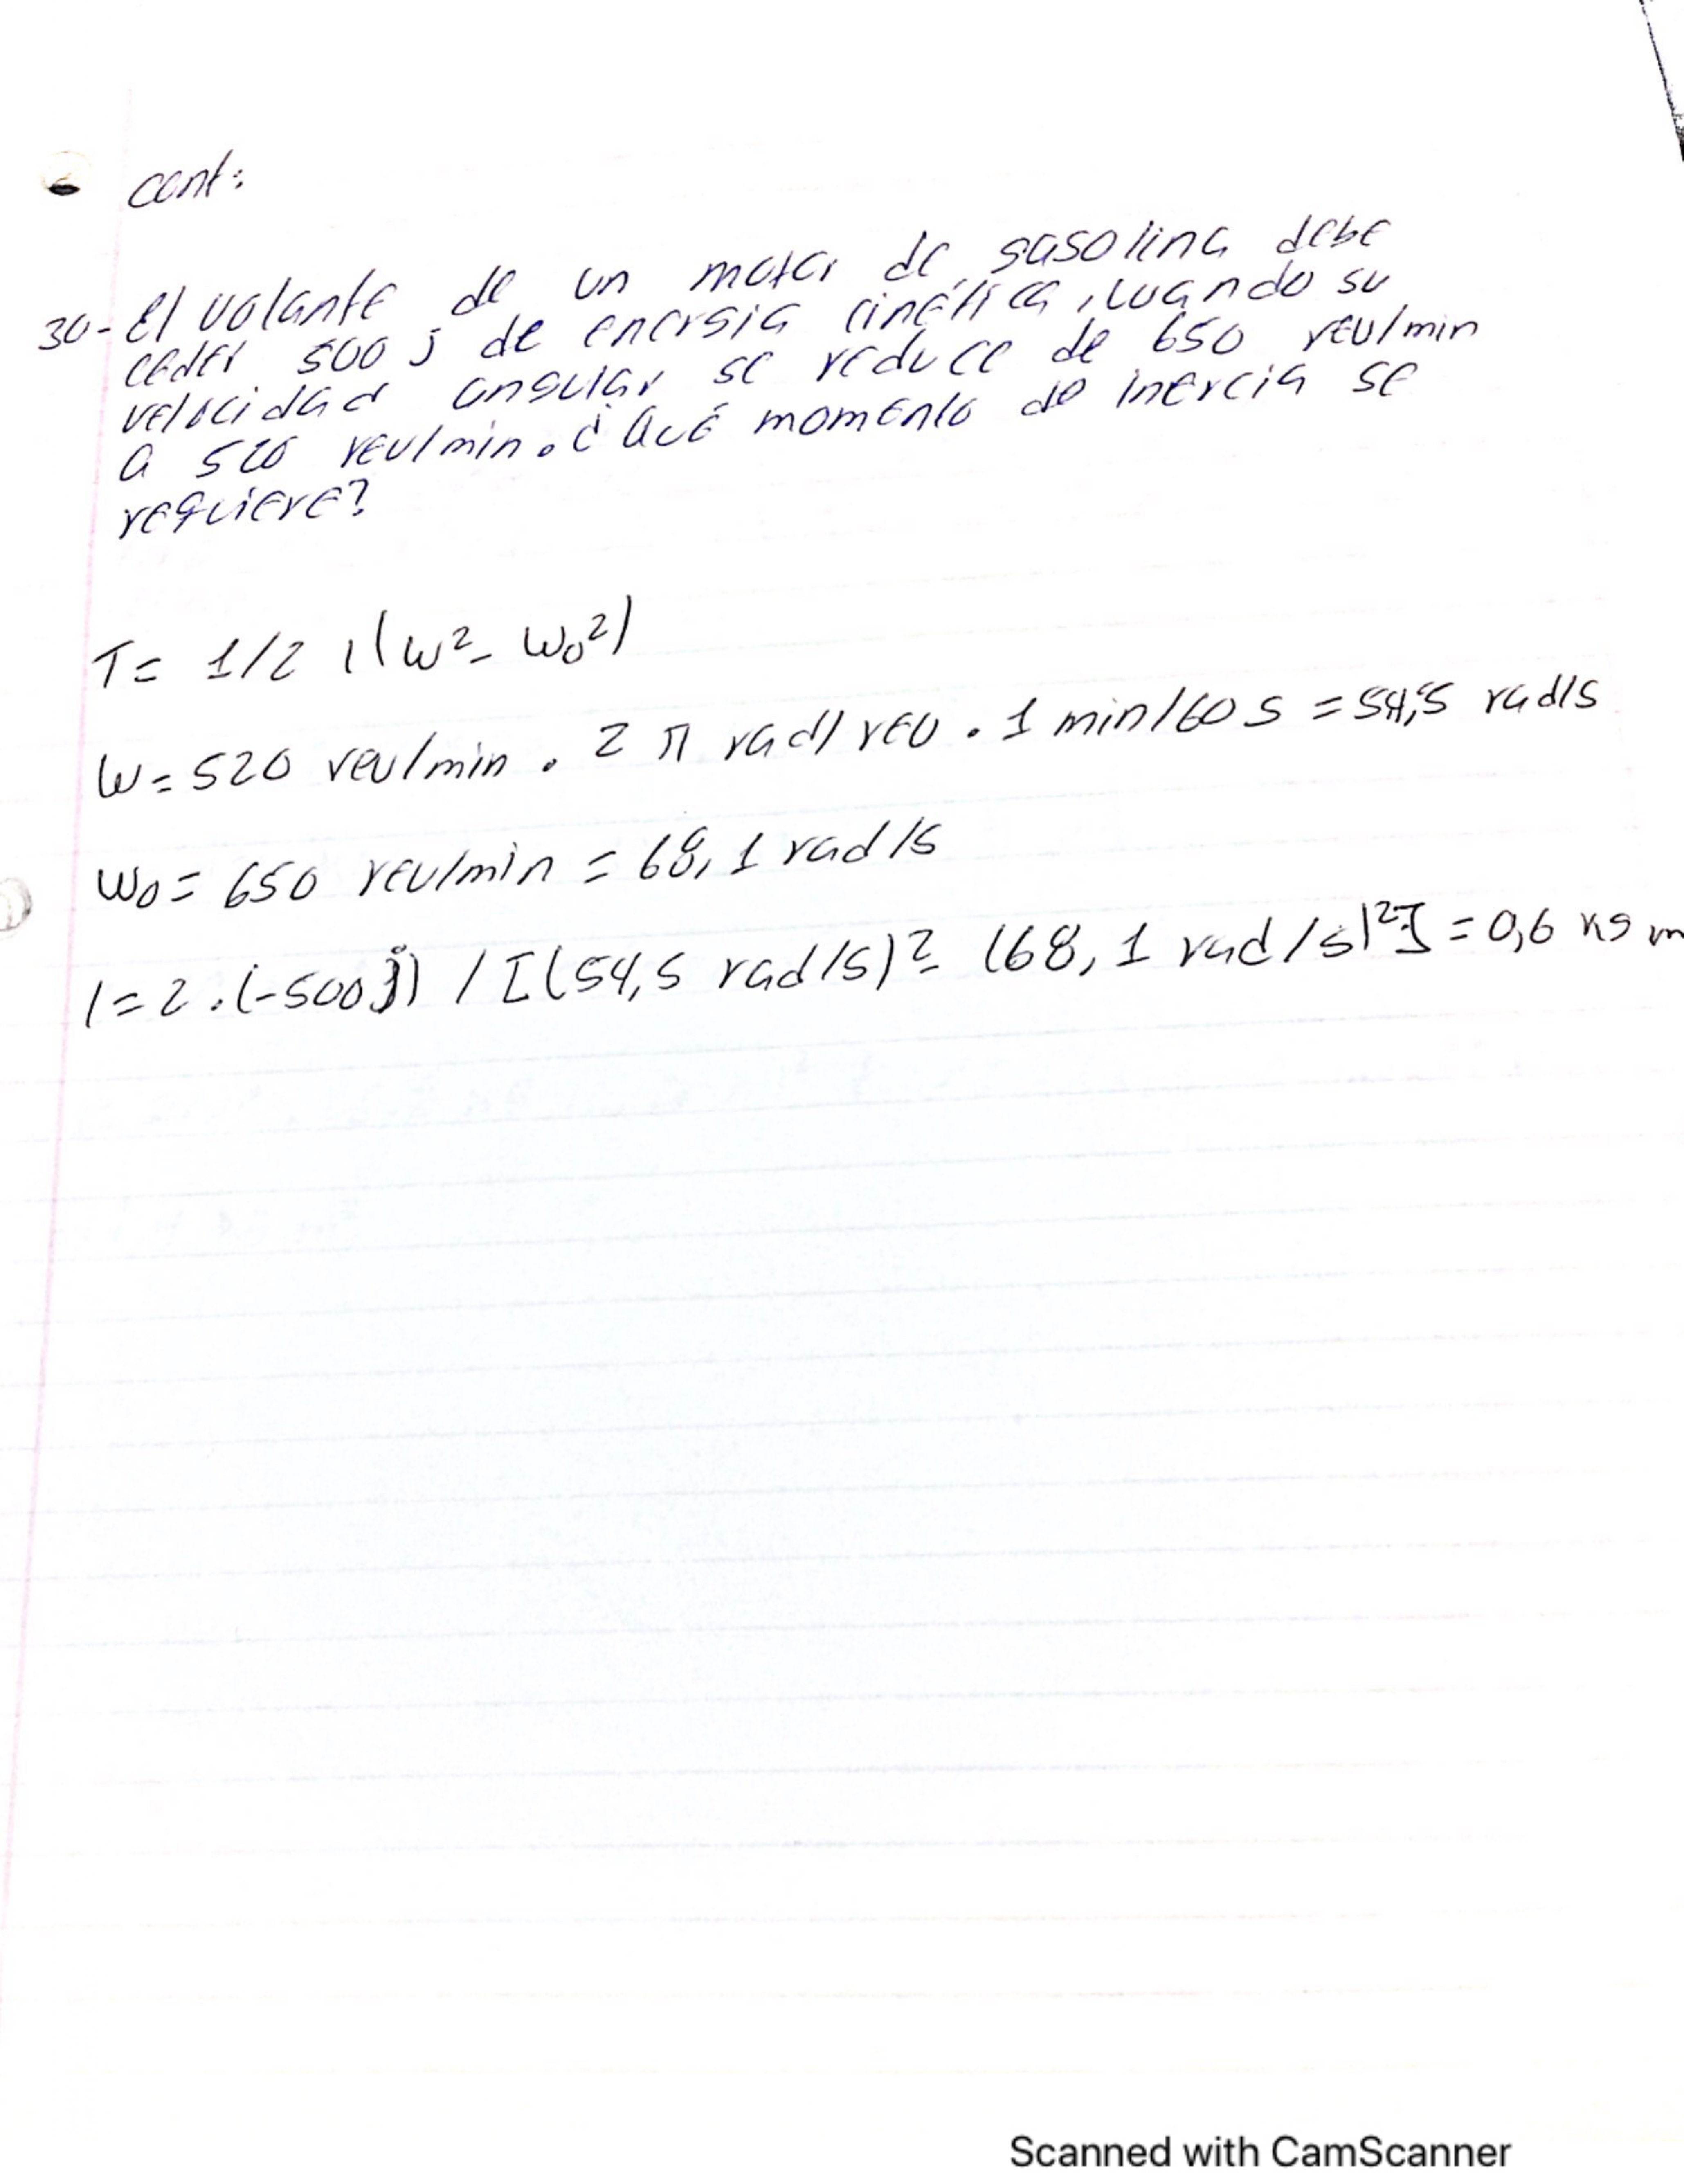 cont:
30- El volante de un motor de gasolina debe
ceder 500 j de energia cinética, cuando su
velocidad angular se reduce de 650 rev/min
a 520 rev/min. ¿Qué momento de inercia se
requiere?
T= 1/2 I(w²- w₀²)
W= 520 rev/min . 2 π rad/rev . 1 min/60 s = 54,5 rad/s
W₀= 650 rev/min = 68,1 rad/s
I= 2 .(-500j) / [(54,5 rad/s)²- (68,1 rad/s)²] = 0,6 kg m
Scanned with CamScanner